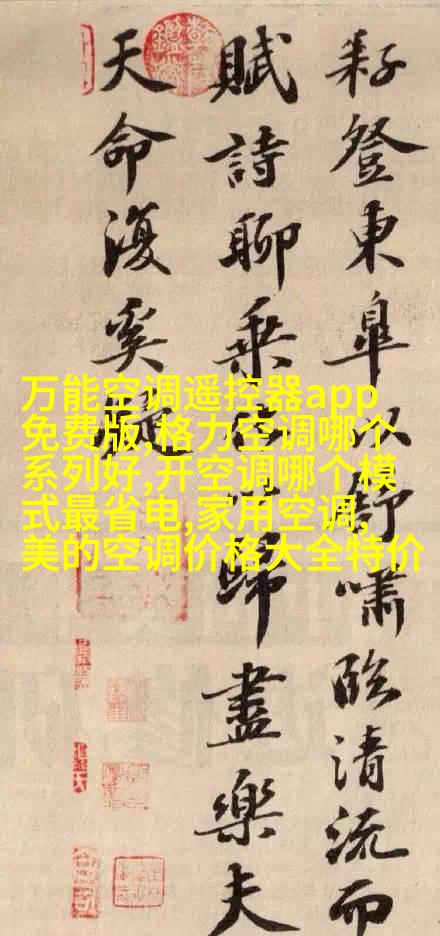 耔登東皐以舒嘯臨清流而
賦詩聊乘化歸盡樂夫
天命復奚
万能空调遥控器app
免费版,格力空调哪个
系列好,开空调哪个模
式最省电,家用空调,
美的空调价格大全特价